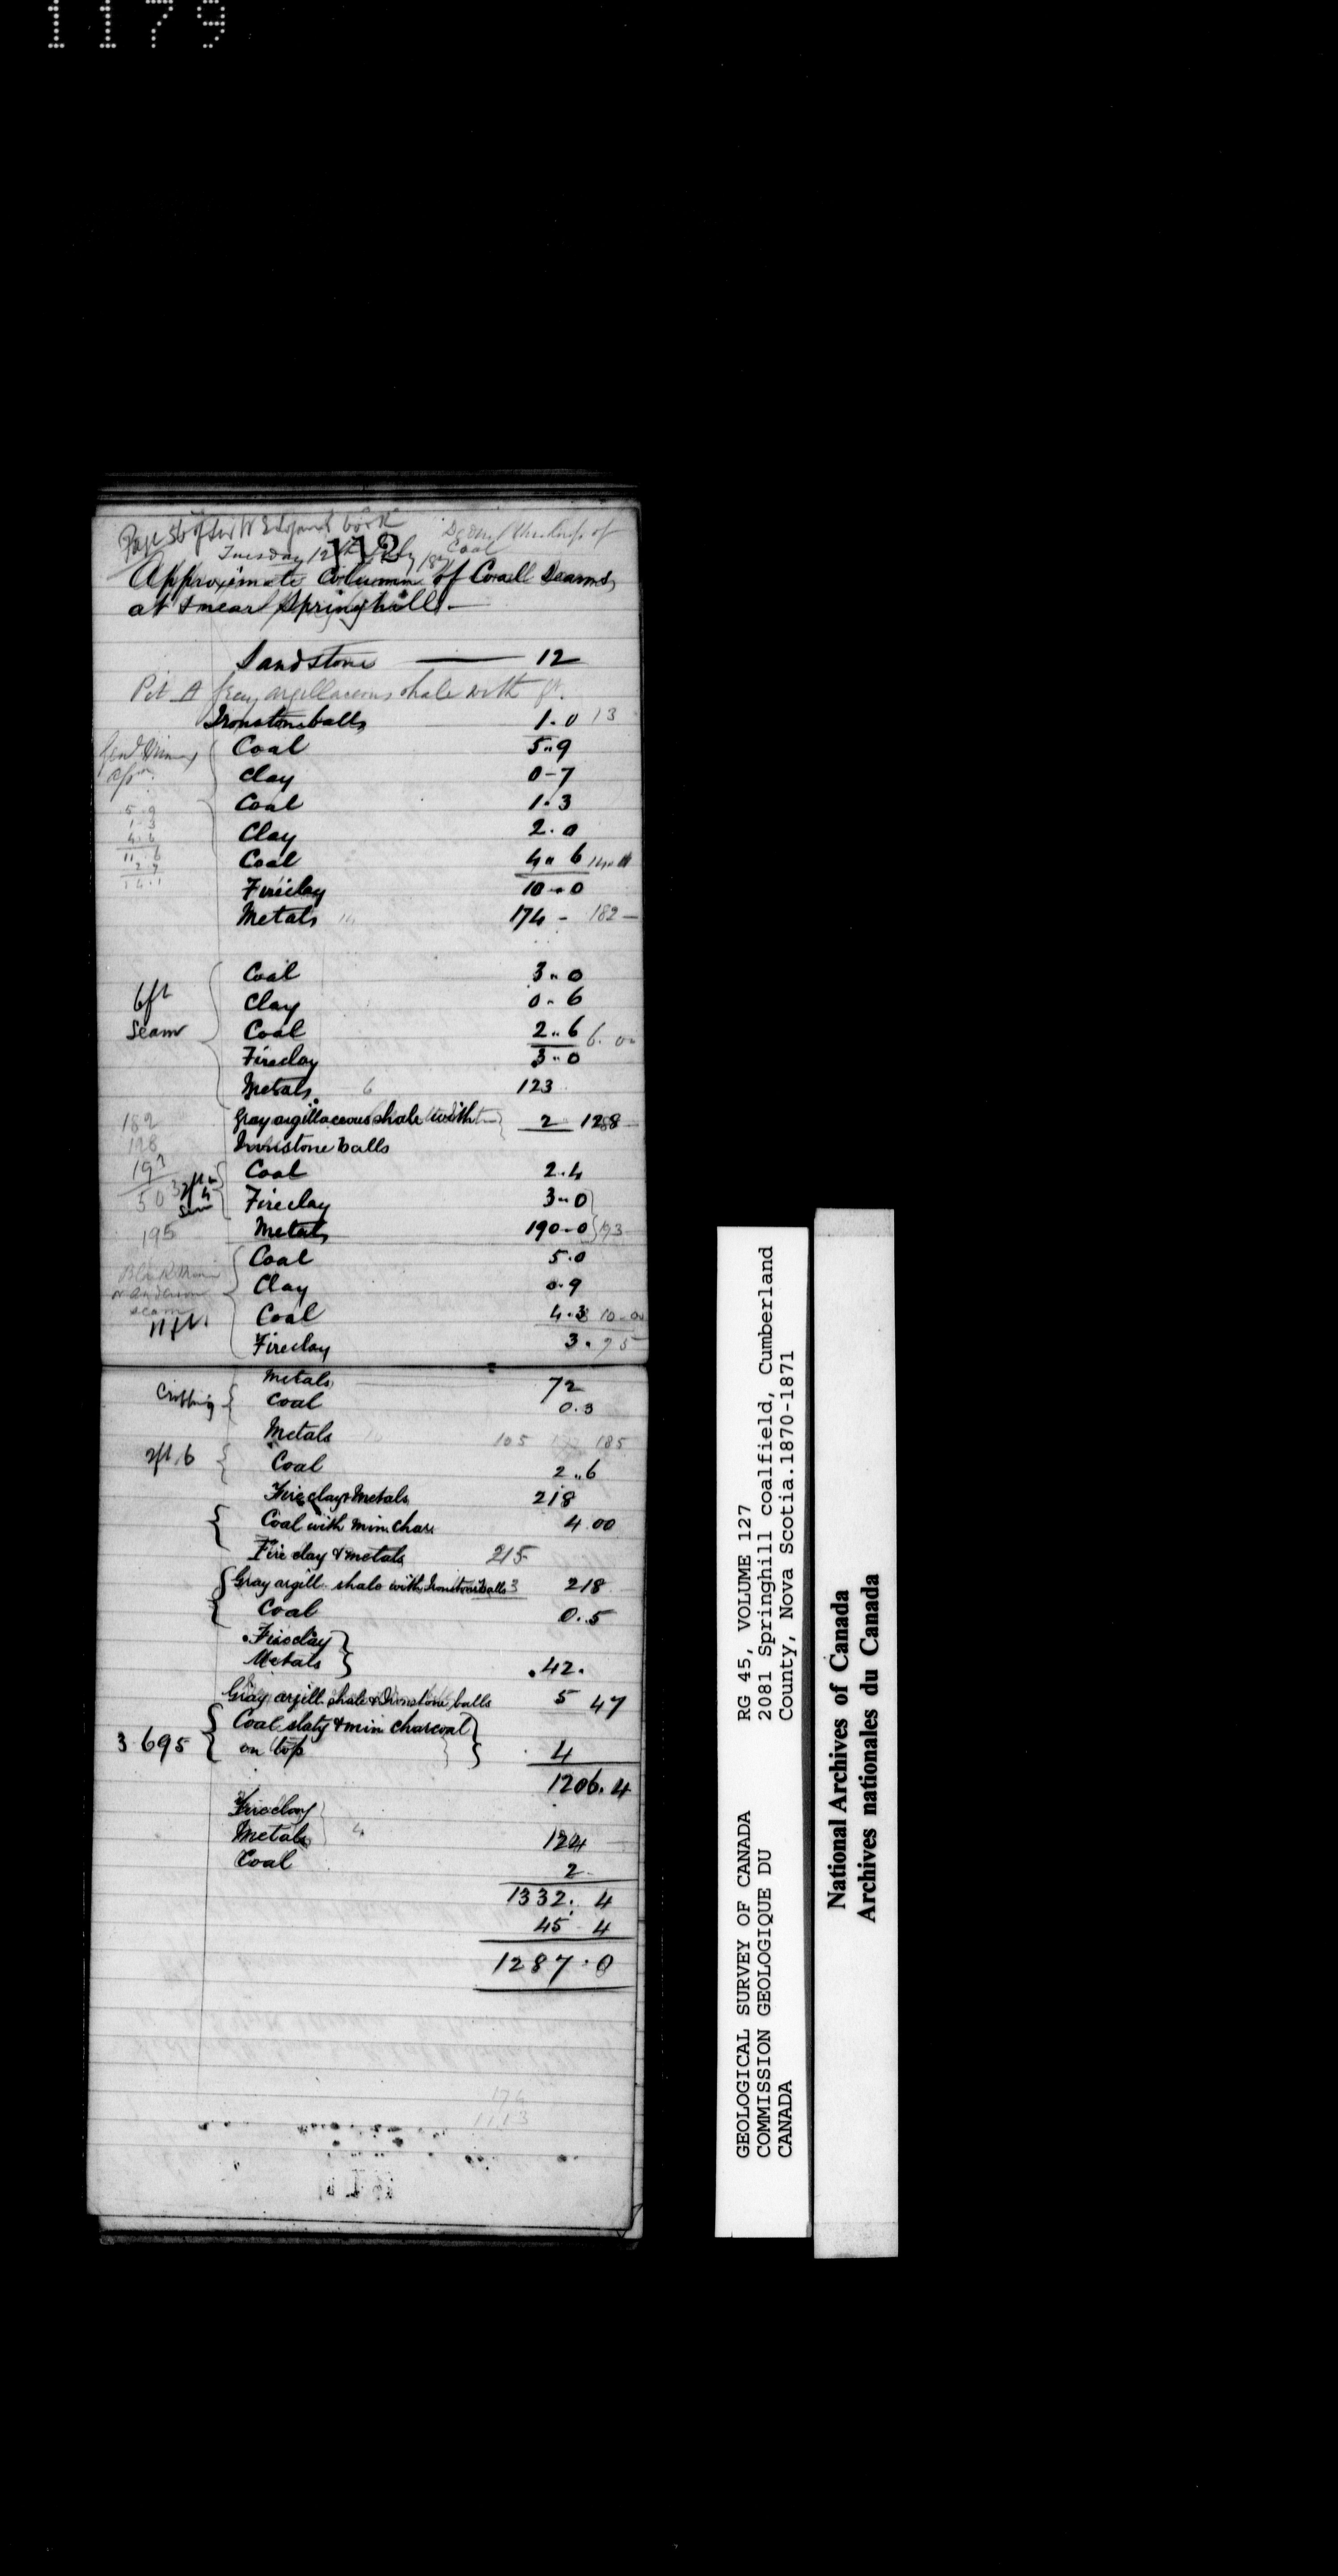 1179
Page 56 of Sir W E Logan's book
112
Tuesday 12th July 187
of
Coal
Approximate Column of Coal Seams
at & near Springhill -
Sandstone — 12
Pit A Gray argillaceous shale with ft.
Ironstone balls 1.0 13
Coal 5"9
Clay 0-7
Coal 1.3
Clay 2.0
Coal 4" 6
Fireclay 10--0
Metals 174 - 182 -
5.9
1-3
4.6
11.6
2.7
14.1
Coal 3"0
6ft Clay 0-6
Seam Coal 2"6 6.0
Fireclay 3"0
Metals 6 123
Gray argillaceous shale with 2 128
Ironstone balls
182
128
193
503
195
Coal 2.4
Fireclay 3"0
Metals 190-0 193
Coal 5.0
Clay 0.9
Seam
11ft. Coal 4.3 10-0
Fireclay 3. 75
Metals 72
Coal 0.3
Metals 10 105 185
2ft.6 Coal 2"6
Fireclay & Metals 218
Coal with min. char. 4.00
Fire clay & metals 215
Gray argill. shale with Ironstone balls 3 218
Coal 0.5
Fireclay
Metals .42.
Gray argill shale & Ironstone balls 5 47
Coal slaty & min charcoal
3.695 on top 4
1206.4
Fireclay
Metals 4 124
Coal 2-
1332. 4
45 4
1287.0
174
1113
GEOLOGICAL SURVEY OF CANADA RG 45, VOLUME 127
COMMISSION GEOLOGIQUE DU 2081 Springhill coalfield, Cumberland
CANADA County, Nova Scotia.1870-1871
National Archives of Canada
Archives nationales du Canada